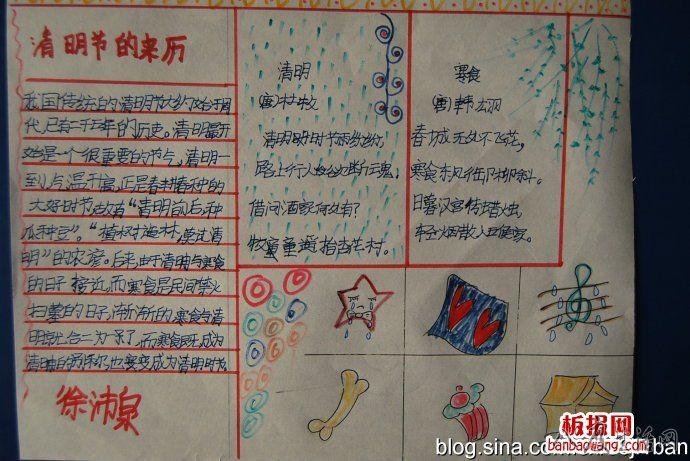 清明节的来历
我国传统的清明节大约始于周
代,已有二千五百年的历史。清明最开
始是一个很重要的节气,清明一
到,气温升高,正是春耕春种的
大好时节,故有“清明前后,种
瓜种豆”。“植树造林,莫过清
明”的农谚。后来由于清明与寒食
的日子接近,而寒食是民间禁火
扫墓的日子,渐渐的寒食与清
明就合二为一了,而寒食既成为
清明的别称,也变成为清明时节
徐沛泉
清明
(唐)杜牧
清明时节雨纷纷,
路上行人欲断魂,
借问酒家何处有?
牧童遥指杏花村。
寒食
(唐)韩翃
春城无处不飞花,
寒食东风御柳斜。
日暮汉宫传蜡烛,
轻烟散入五侯家。
板报网
www.banbaowang.com
blog.sina.co
ban